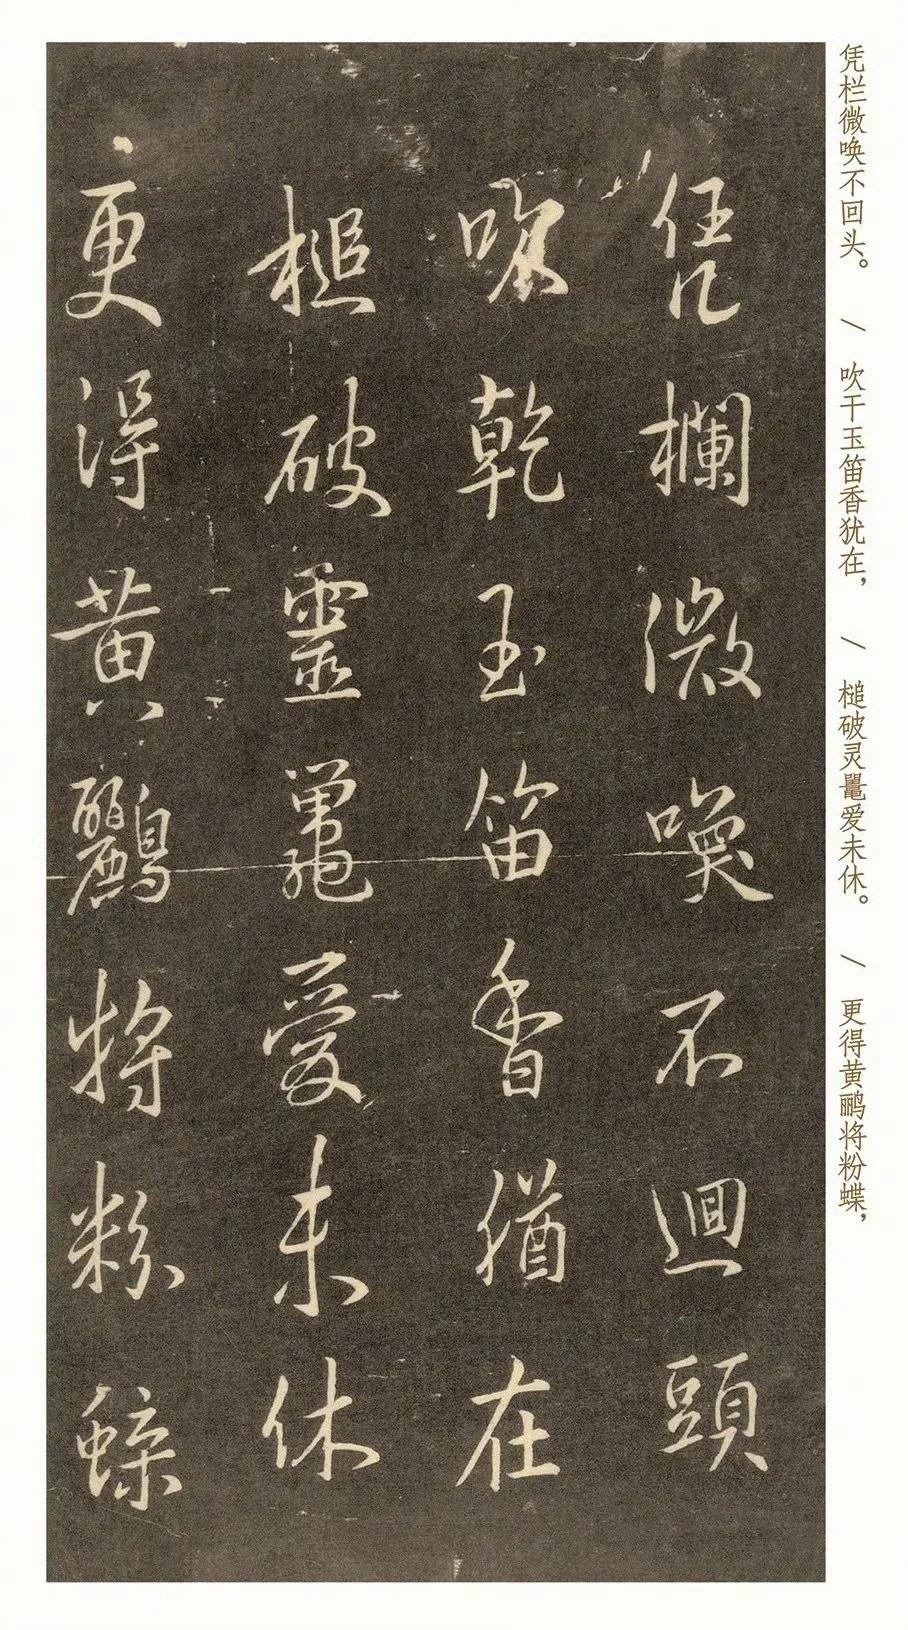 凭栏微唤不回头。 \ 吹干玉笛香犹在， \ 槌破灵鼍爱未休。 \ 更得黄鹂将粉蝶，
凭欄微喚不迴頭
吹乾玉笛香猶在
槌破靈鼉愛未休
更得黄鸝將粉蝶